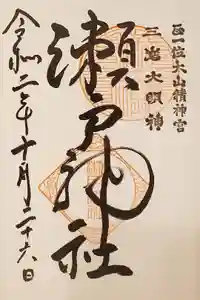 正一位大山積神宮
三島大明神
瀬戸神社
令和二年十月二十六日